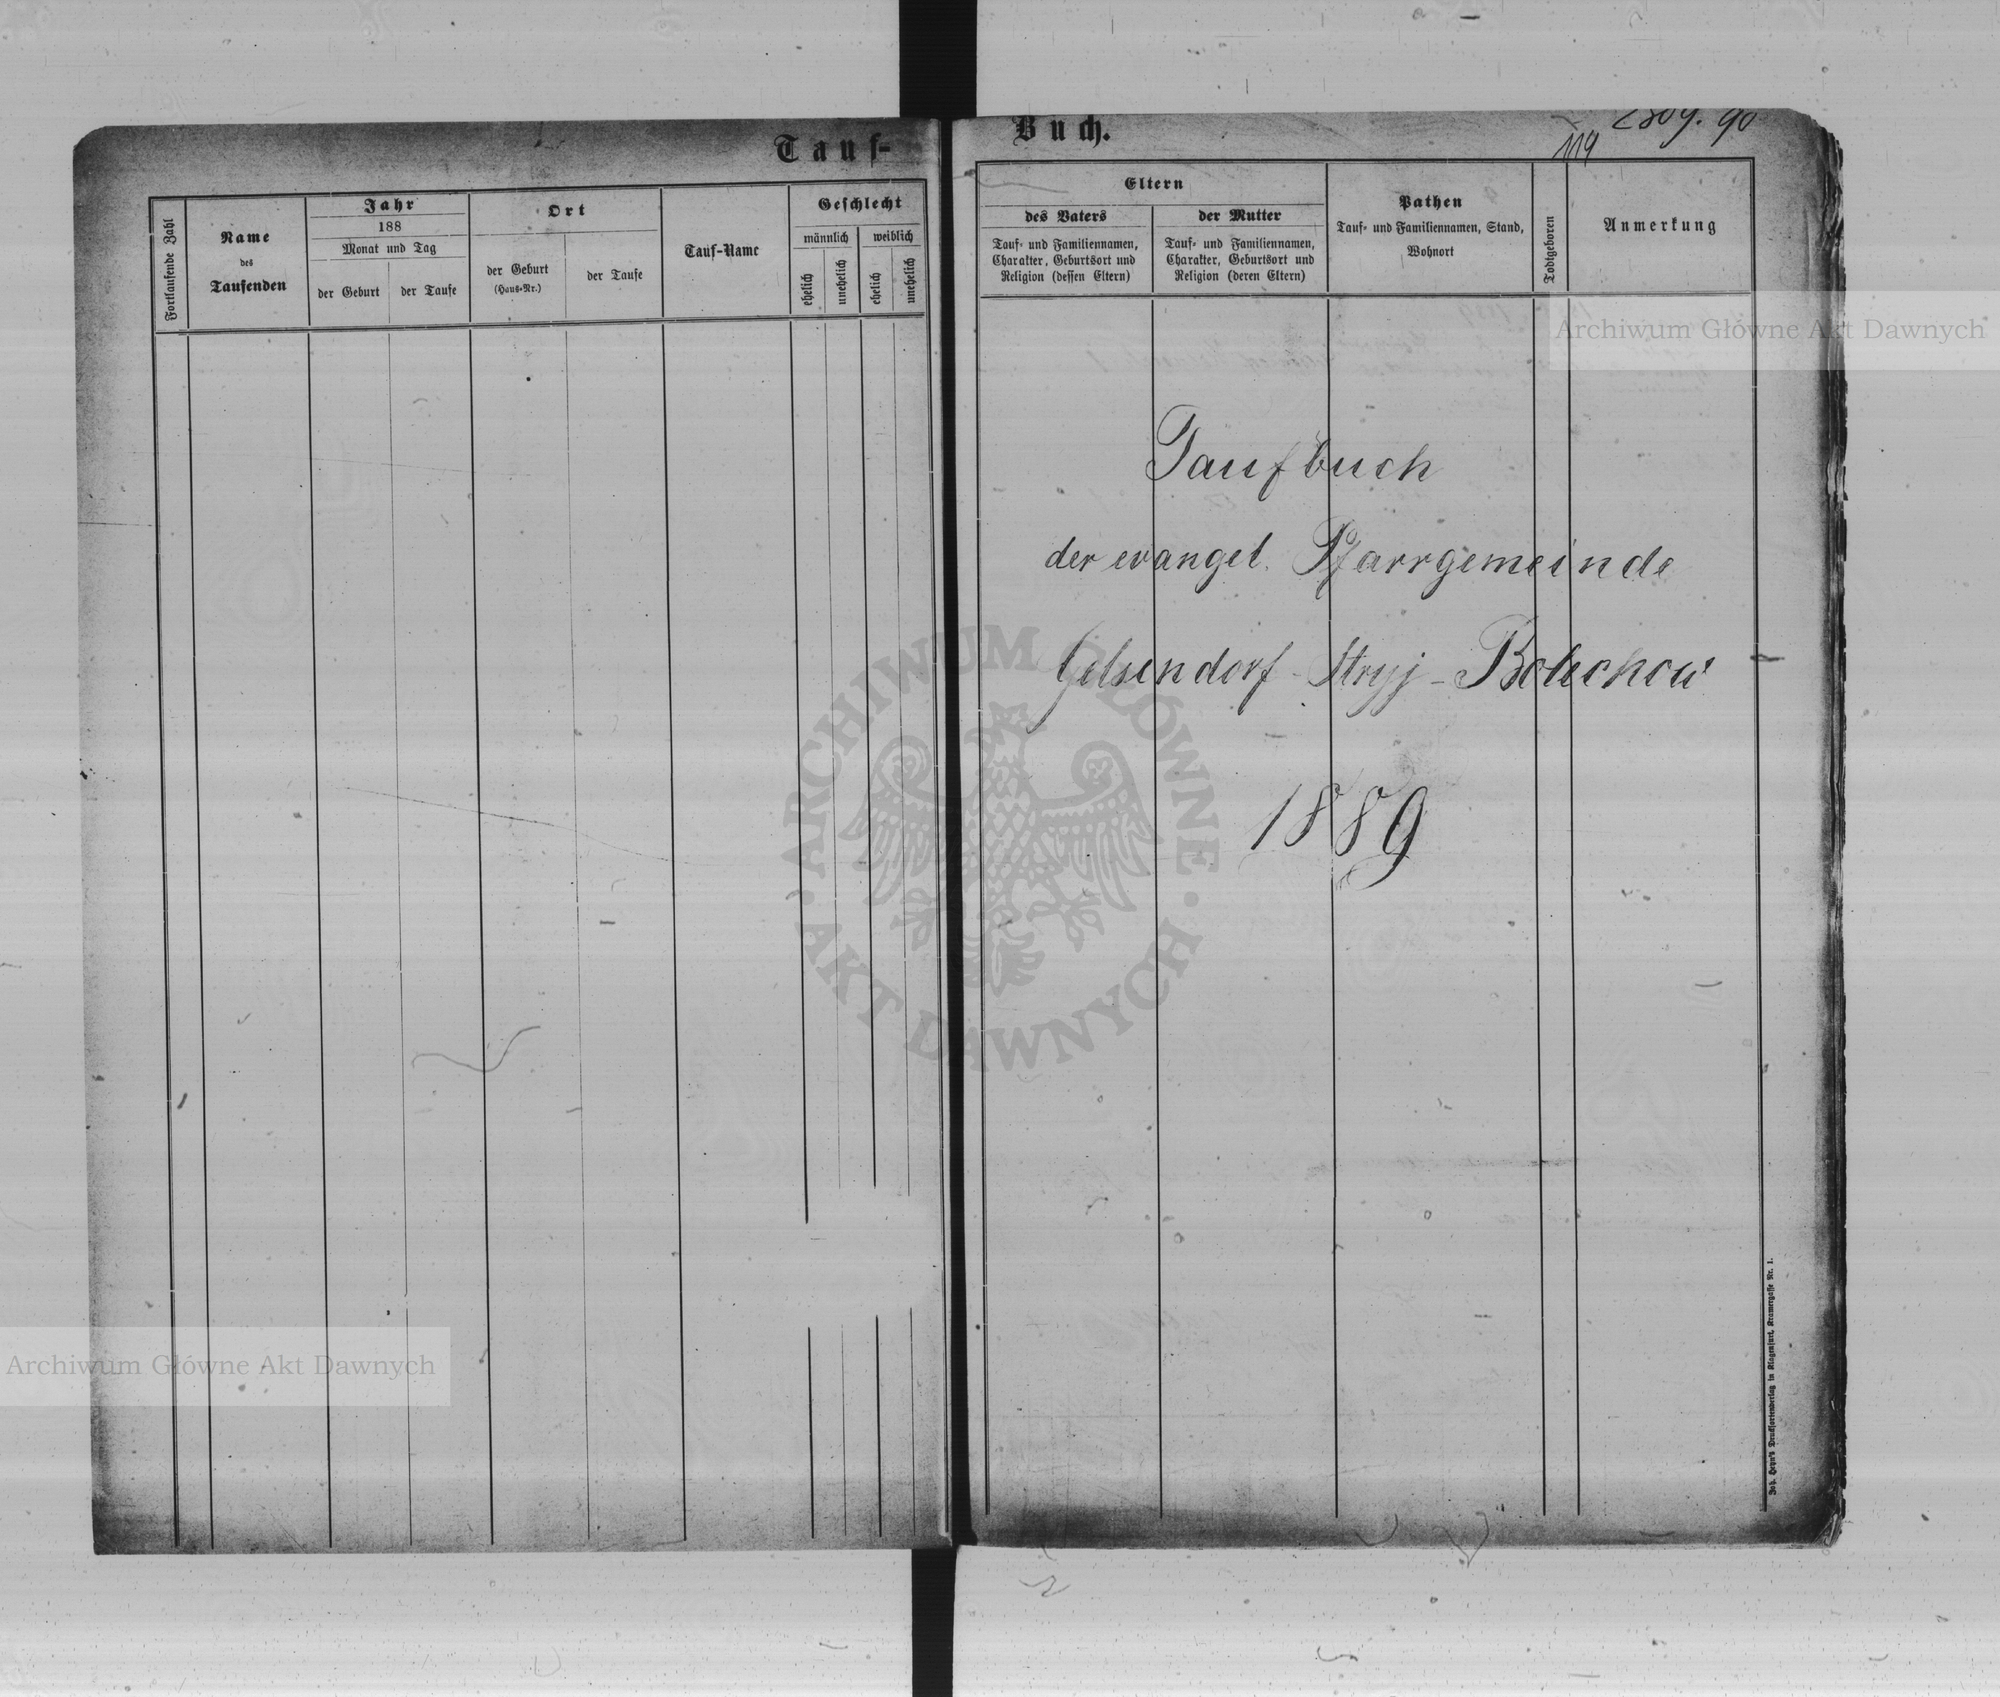 Tauf-
Buch.
119
Fortlaufende Zahl
Name
des
Taufenden
Jahr
188
Monat und Tag
der Geburt
der Taufe
Ort
der Geburt
(Haus-Nr.)
der Taufe
Tauf-Name
Geschlecht
männlich
weiblich
ehelich
unehelich
ehelich
unehelich
Eltern
des Vaters
Tauf- und Familiennamen,
Charakter, Geburtsort und
Religion (dessen Eltern)
der Mutter
Tauf- und Familiennamen,
Charakter, Geburtsort und
Religion (deren Eltern)
Pathen
Tauf- und Familiennamen, Stand,
Wohnort
Todtgeboren
Anmerkung
Archiwum Główne Akt Dawnych
Taufbuch
der evangel. Pfarrgemeinde
Gelsendorf - Stryj - Bolechow
1889
ARCHIWUM GŁÓWNE
· AKT DAWNYCH ·
Archiwum Główne Akt Dawnych
Joh. Heyn's Drucksortenverlag in Klagenfurt, Kramergasse Nr. 1.